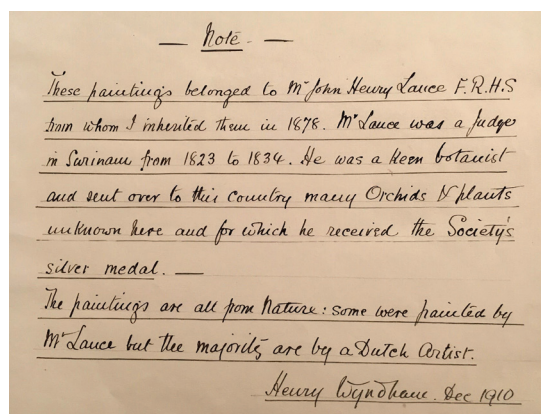 — Note. —
These paintings belonged to Mr John Henry Lance F.R.H.S
from whom I inherited them in 1878. Mr Lance was a Judge
in Surinam from 1823 to 1834. He was a keen botanist
and sent over to this country many Orchids & plants
unknown here and for which he received the Society's
silver medal. —
The paintings are all from Nature: some were painted by
Mr Lance but the majority are by a Dutch Artist.
Henry Wyndham. Dec 1910